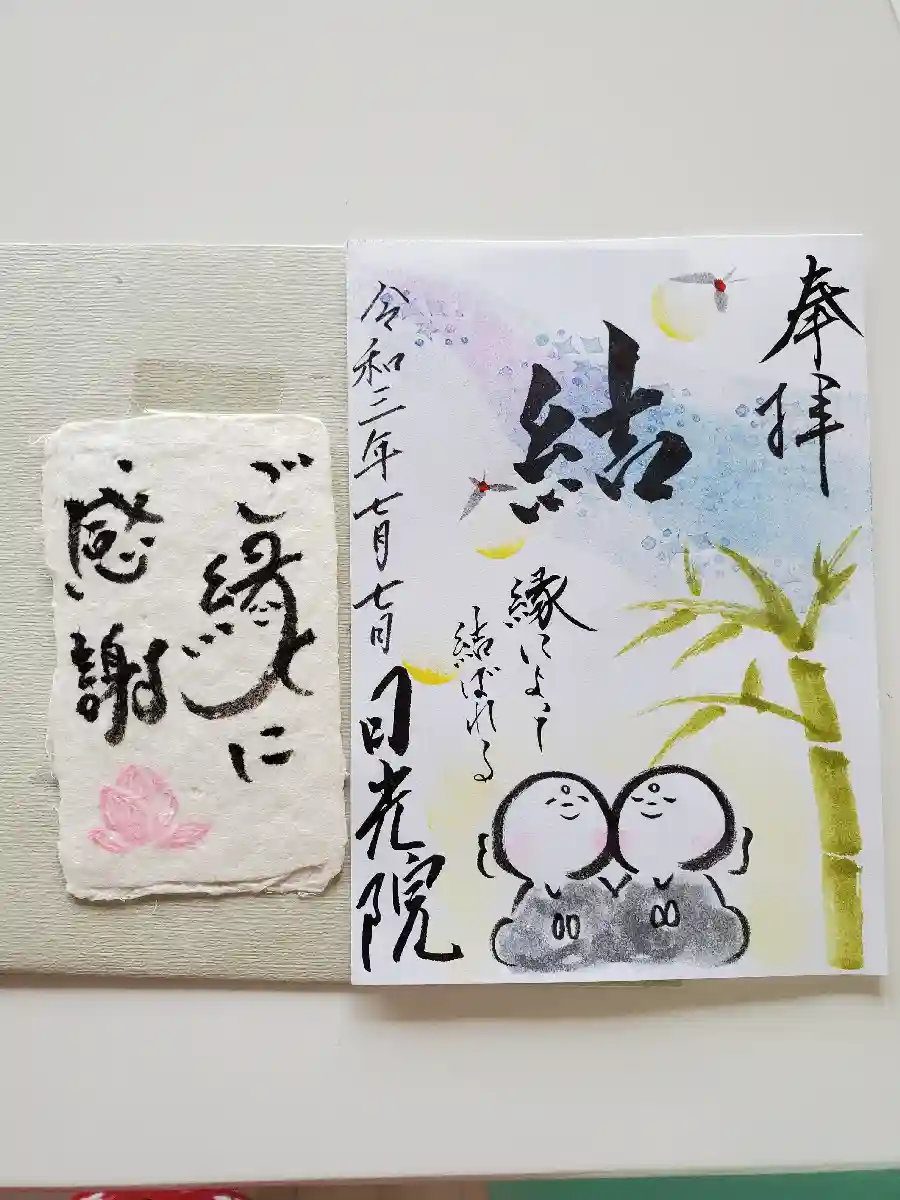 奉拝
結
縁によって
結ばれる
令和三年七月七日
日光院
ご縁ごとに
感謝